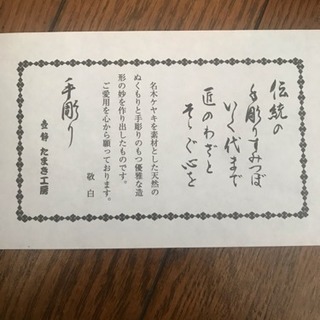 伝統の
手彫りすみつぼ
いく代まで
匠のわざと
そゝぐ心を
名木ケヤキを素材とした天然の
ぬくもりと手彫りのもつ優雅な造
形の妙を作り出したものです。
ご愛用を心から願っております。
敬白
手彫り
たまき工房